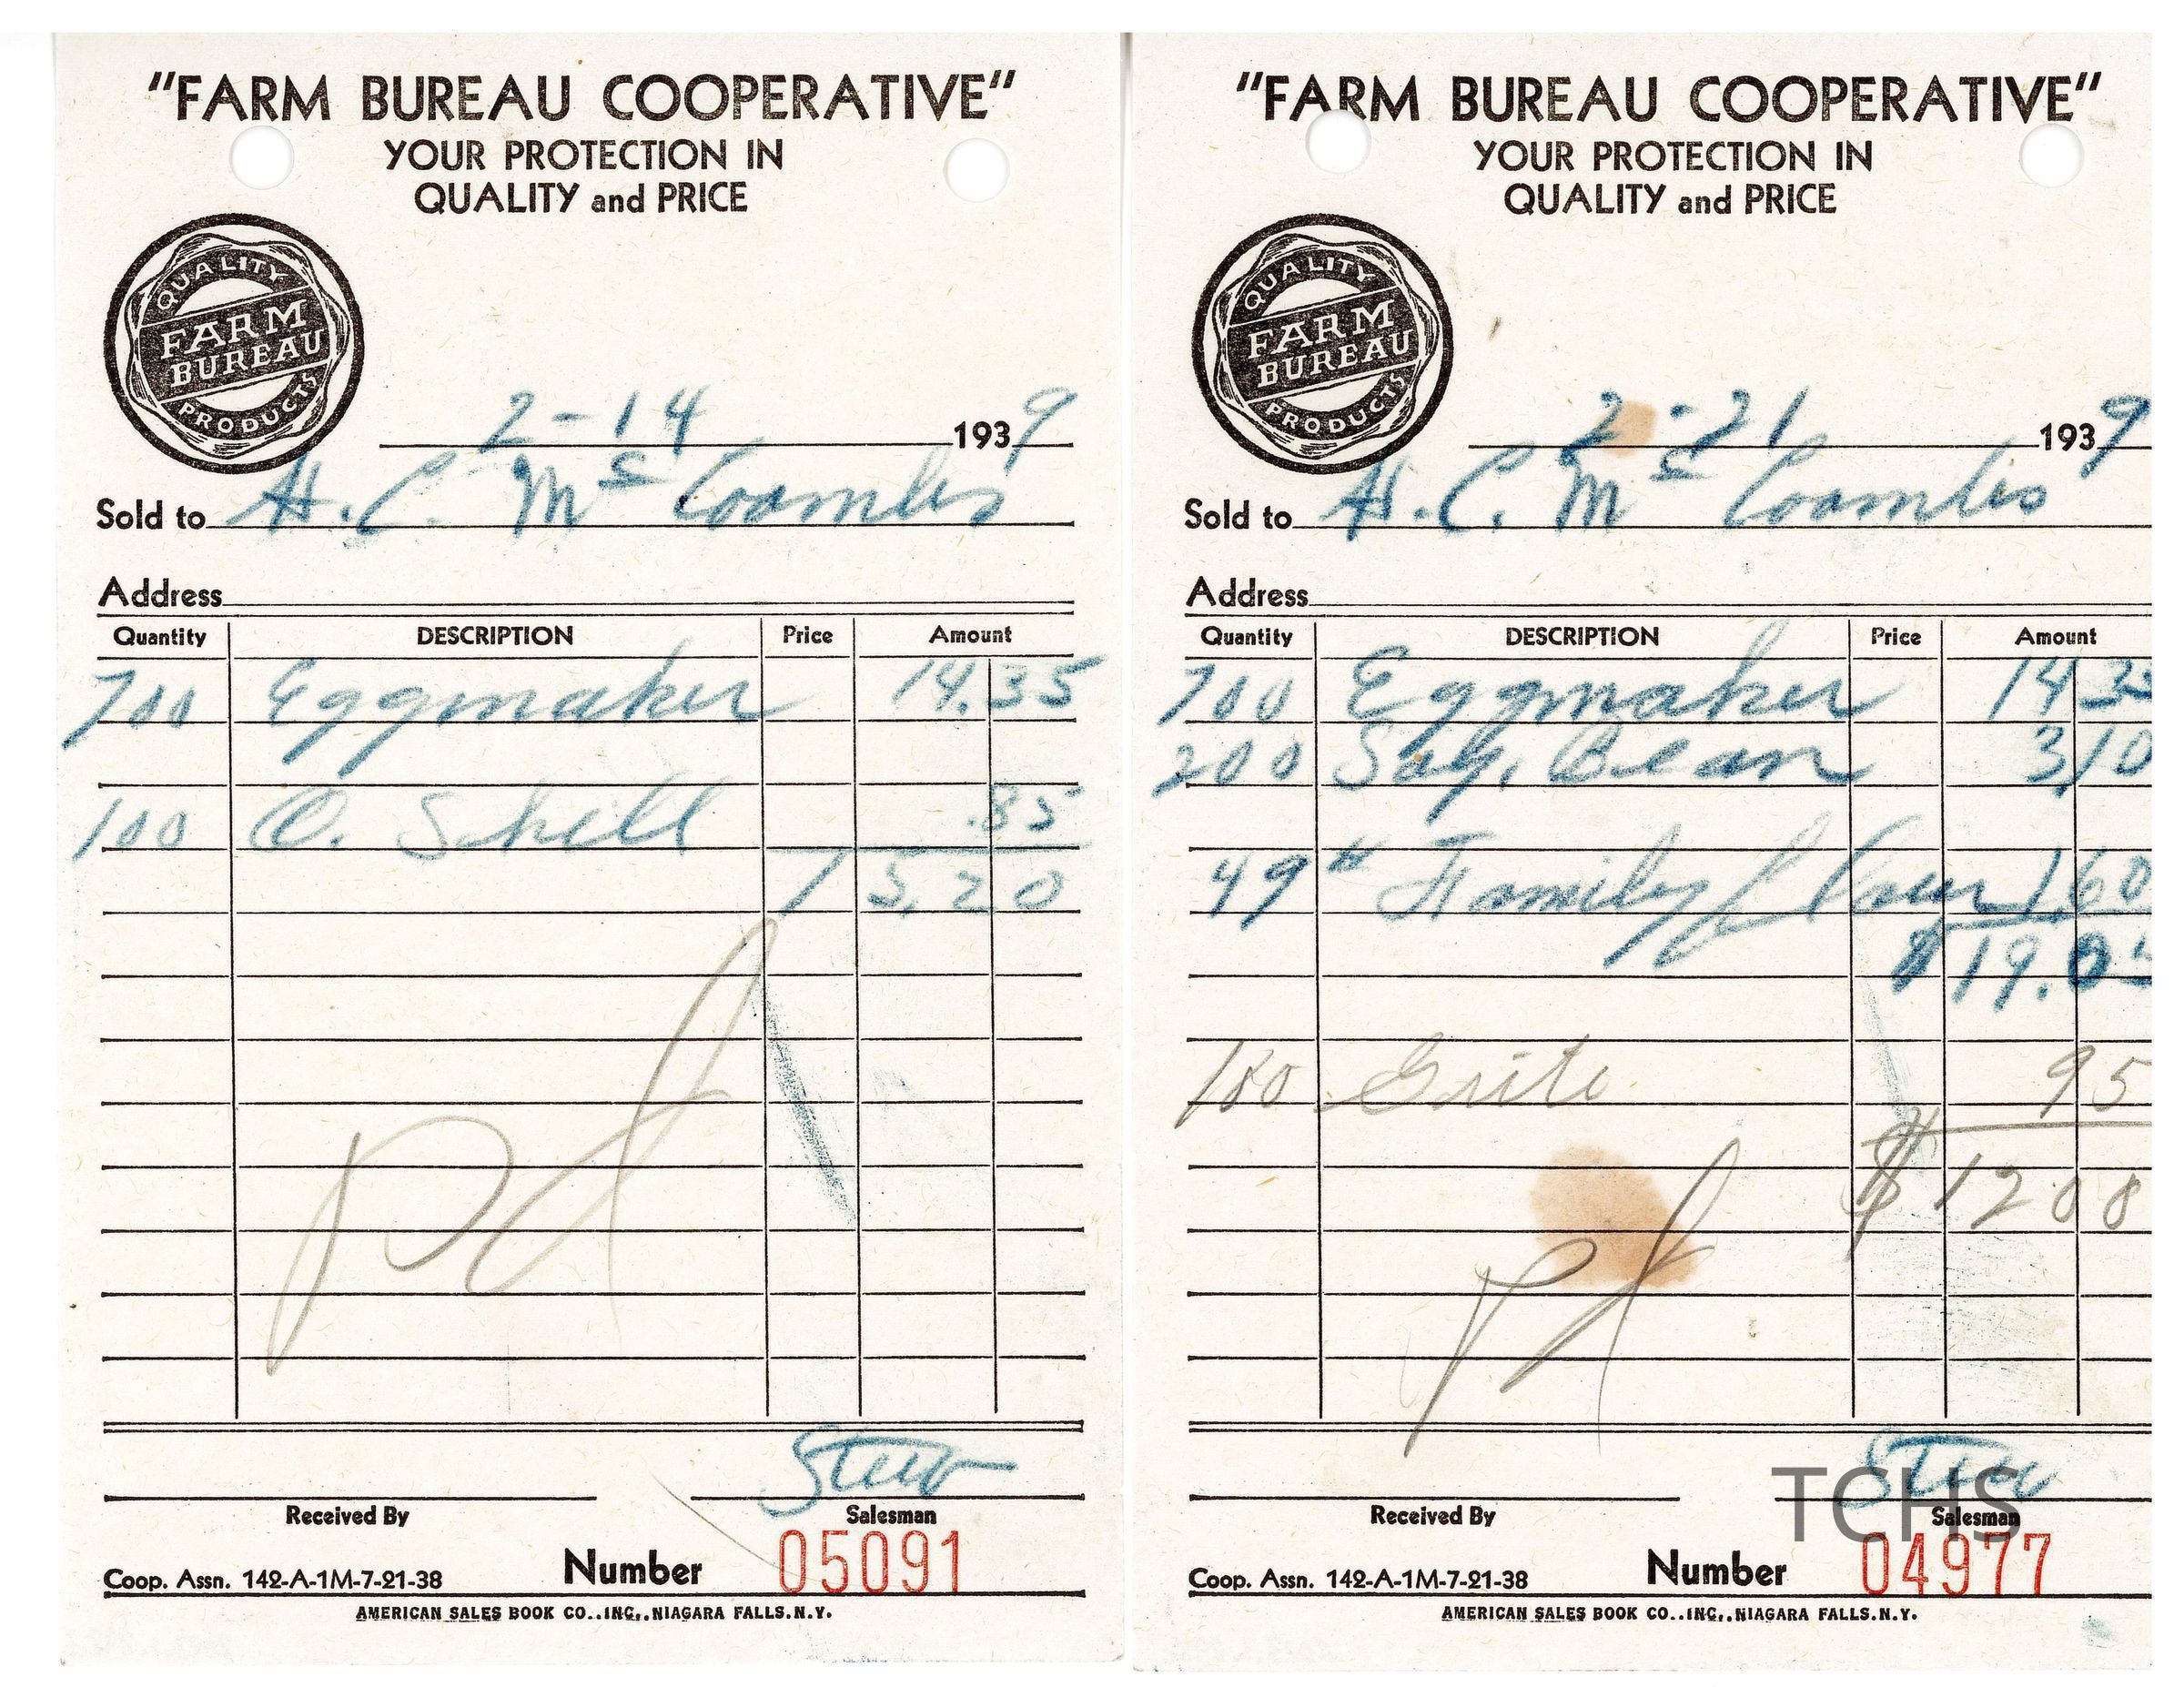 "FARM BUREAU COOPERATIVE"
YOUR PROTECTION IN
QUALITY and PRICE
QUALITY
FARM
BUREAU
PRODUCTS
2-14 1939
Sold to H. C. Mc Coombs
Address
Quantity DESCRIPTION Price Amount
700 Eggmaker 14.35
100 O. Shell .85
15.20
Pd
Stew
Received By Salesman
Coop. Assn. 142-A-1M-7-21-38 Number 05091
AMERICAN SALES BOOK CO., INC., NIAGARA FALLS, N.Y.
"FARM BUREAU COOPERATIVE"
YOUR PROTECTION IN
QUALITY and PRICE
QUALITY
FARM
BUREAU
PRODUCTS
2-21 1939
Sold to H. C. Mc Coombs
Address
Quantity DESCRIPTION Price Amount
700 Eggmaker 14 35
200 Soy. Bean 3.10
49# Family Flour 1.60
$19.05
100 Grits 95
$
Pd
Stew
TCHS
Received By Salesman
Coop. Assn. 142-A-1M-7-21-38 Number 04977
AMERICAN SALES BOOK CO., INC., NIAGARA FALLS, N.Y.